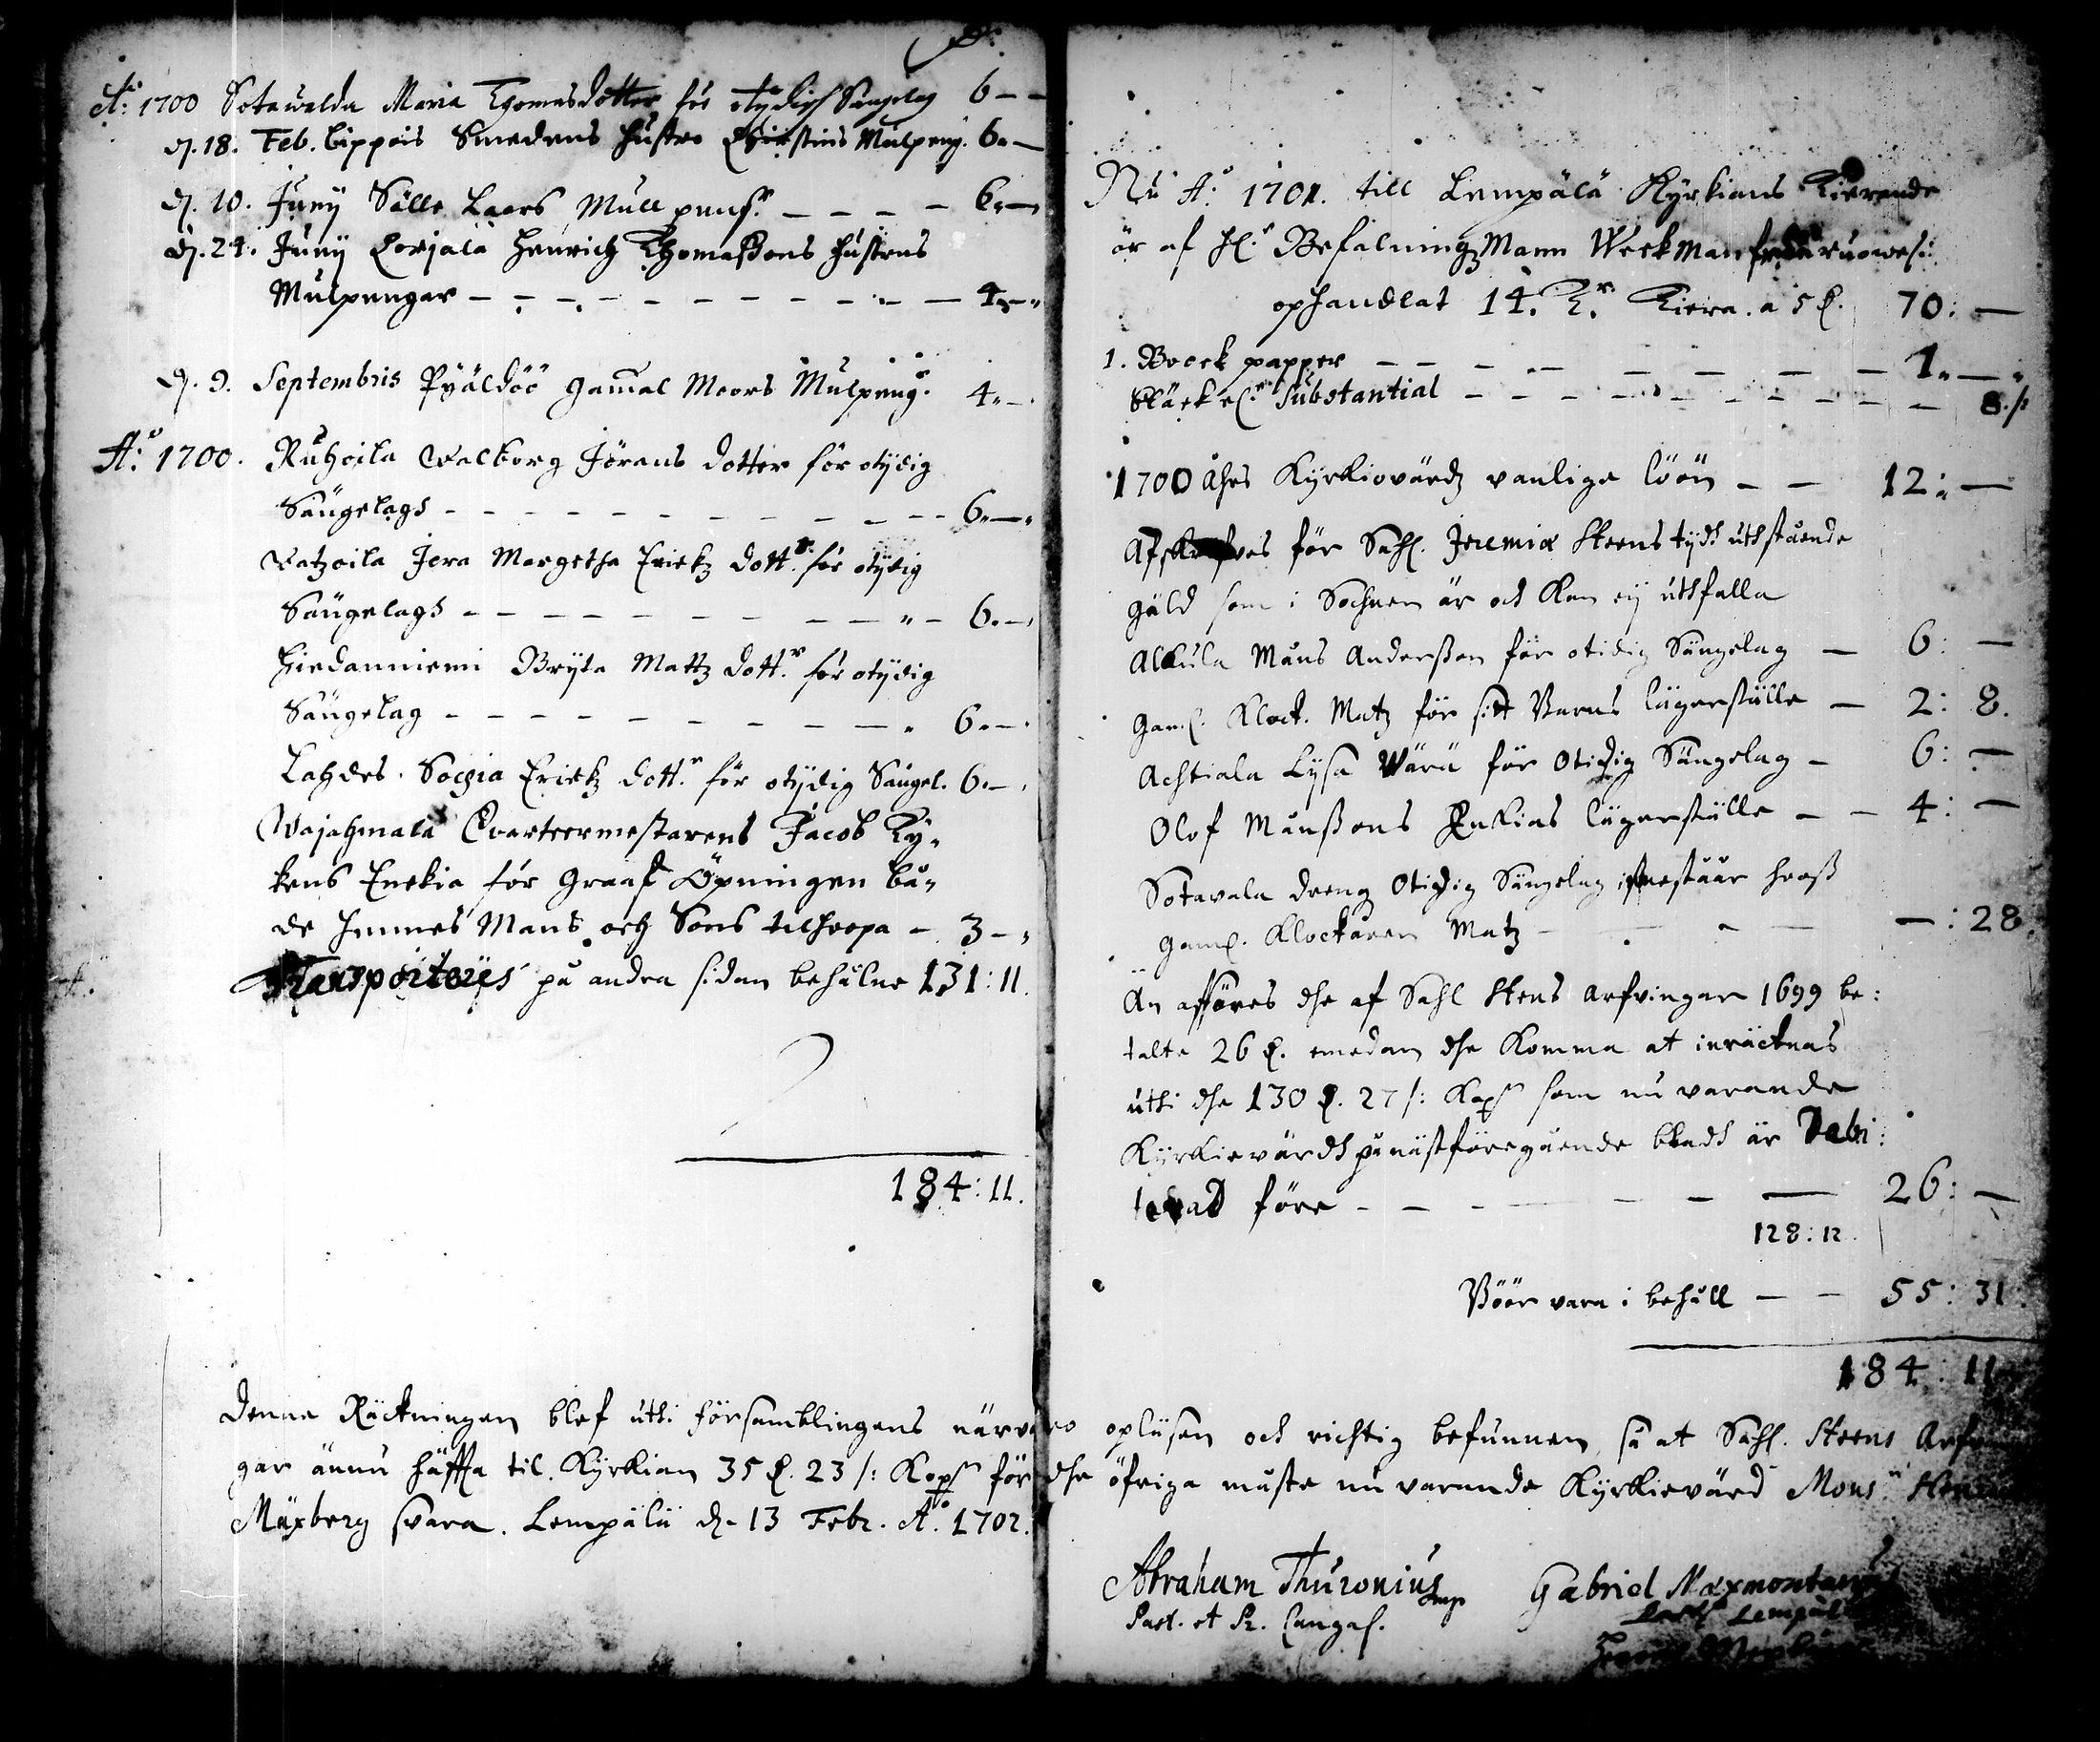 Ao: 1700 Sotawalda Maria Thomasdotter för otydigh Sängelag 6 — —
d. 18. Feb. Lippois Smedens hustro Christins Mulpeng. 6 „ —
d. 10. Juny Sälle Laars Mull peng:r — — — — 6 „ —
d. 24. Juny Corjala Henrich Thomaßons hustrus
Mulpengar — — — — — — — — — 4 „ — „
d. 9. Septembris Pyäldöö gamal Moors Mulpeng:r 4 „ — .
Ao: 1700. Ruhoila Walborg Jörans dotter för otydig
Sängelags — — — — — — — — 6 „ — „
Watzoila Jera Margetha Erickz dott:r för otydig
Sängelags — — — — — — — — „ — 6 „ — ,
Hiedanniemi Bryta Mattz dott:r för otydig
Sängelag — — — — — — — — „ 6 „ — .
Lahdes. Sochia Erickz dott:r för otydig Sängel. 6 „ — .
Wajahmala Qvarteermestarens Jacob Ky„
kens Enckia för Graaf Öpningen bå„
de hennes Mans och Sons tilhopa — 3 — „
Transporteres på andra sidan behålne 131: 11.
184: 11.
Nu Ao: 1701. till Lempälä Kyrkians Tierende
är af Hl:r BefalningzMann Weekman från ruowesi:
ophandlat 14. T:r Tiera. a 5 d. 70: —
1. Boock papper — — — — — — — — 1 „ — „
Bläck el:r Substantial — — — — — — — — 8./:
1700 åhrs Kyrkiovärdz vanlige löön — — 12: —
Afskrifves för Sahl. Jeremiæ Steens tydh uthstående
gäld som i Sochnen är och Kan ey uthfalla
Alkula Måns Anderßon för otidig Sängelag — 6: —
Gaml. Klock. Matz för sitt Barns lägerställe — 2: 8.
Achtiala Lysa Wärä för Otidig Sängelag — 6: —
Olof Månßons Enkias lägerställe — — 4: —
Sotavala dreng Otidig Sängelag innestäär hooß
gaml. Klockaren Matz — — — — : 28.
Än afföres dhe af Sahl Stens Arfvingar 1699 be:
talte 26 d. emedan dhe Komma at inräcknas
uthi dhe 130 d. 27 /: Kopr som nu varande
Kyrkievärdh på nästföregående bladh är Debi:
terad före — — — — — — — 26: —
128: 12.
Böör vara i behåll — — 55: 31.
184: 11
Denne Räckningen blef uthi församblingens närvaro opläsen och richtig befunnen, så at Sahl. Steens Arfvin
gar ännu häffta til Kyrkian 35 d. 23 /: Kopr för dhe öfriga måste nu varande Kyrkievärd Mons:r
Mäxberg svara. Lempälä d. 13 Febr. Ao. 1702.
Abraham Thuronius mp
Past. et Pr. Cangas.
Gabriel Mæxmontanus
Lempäl